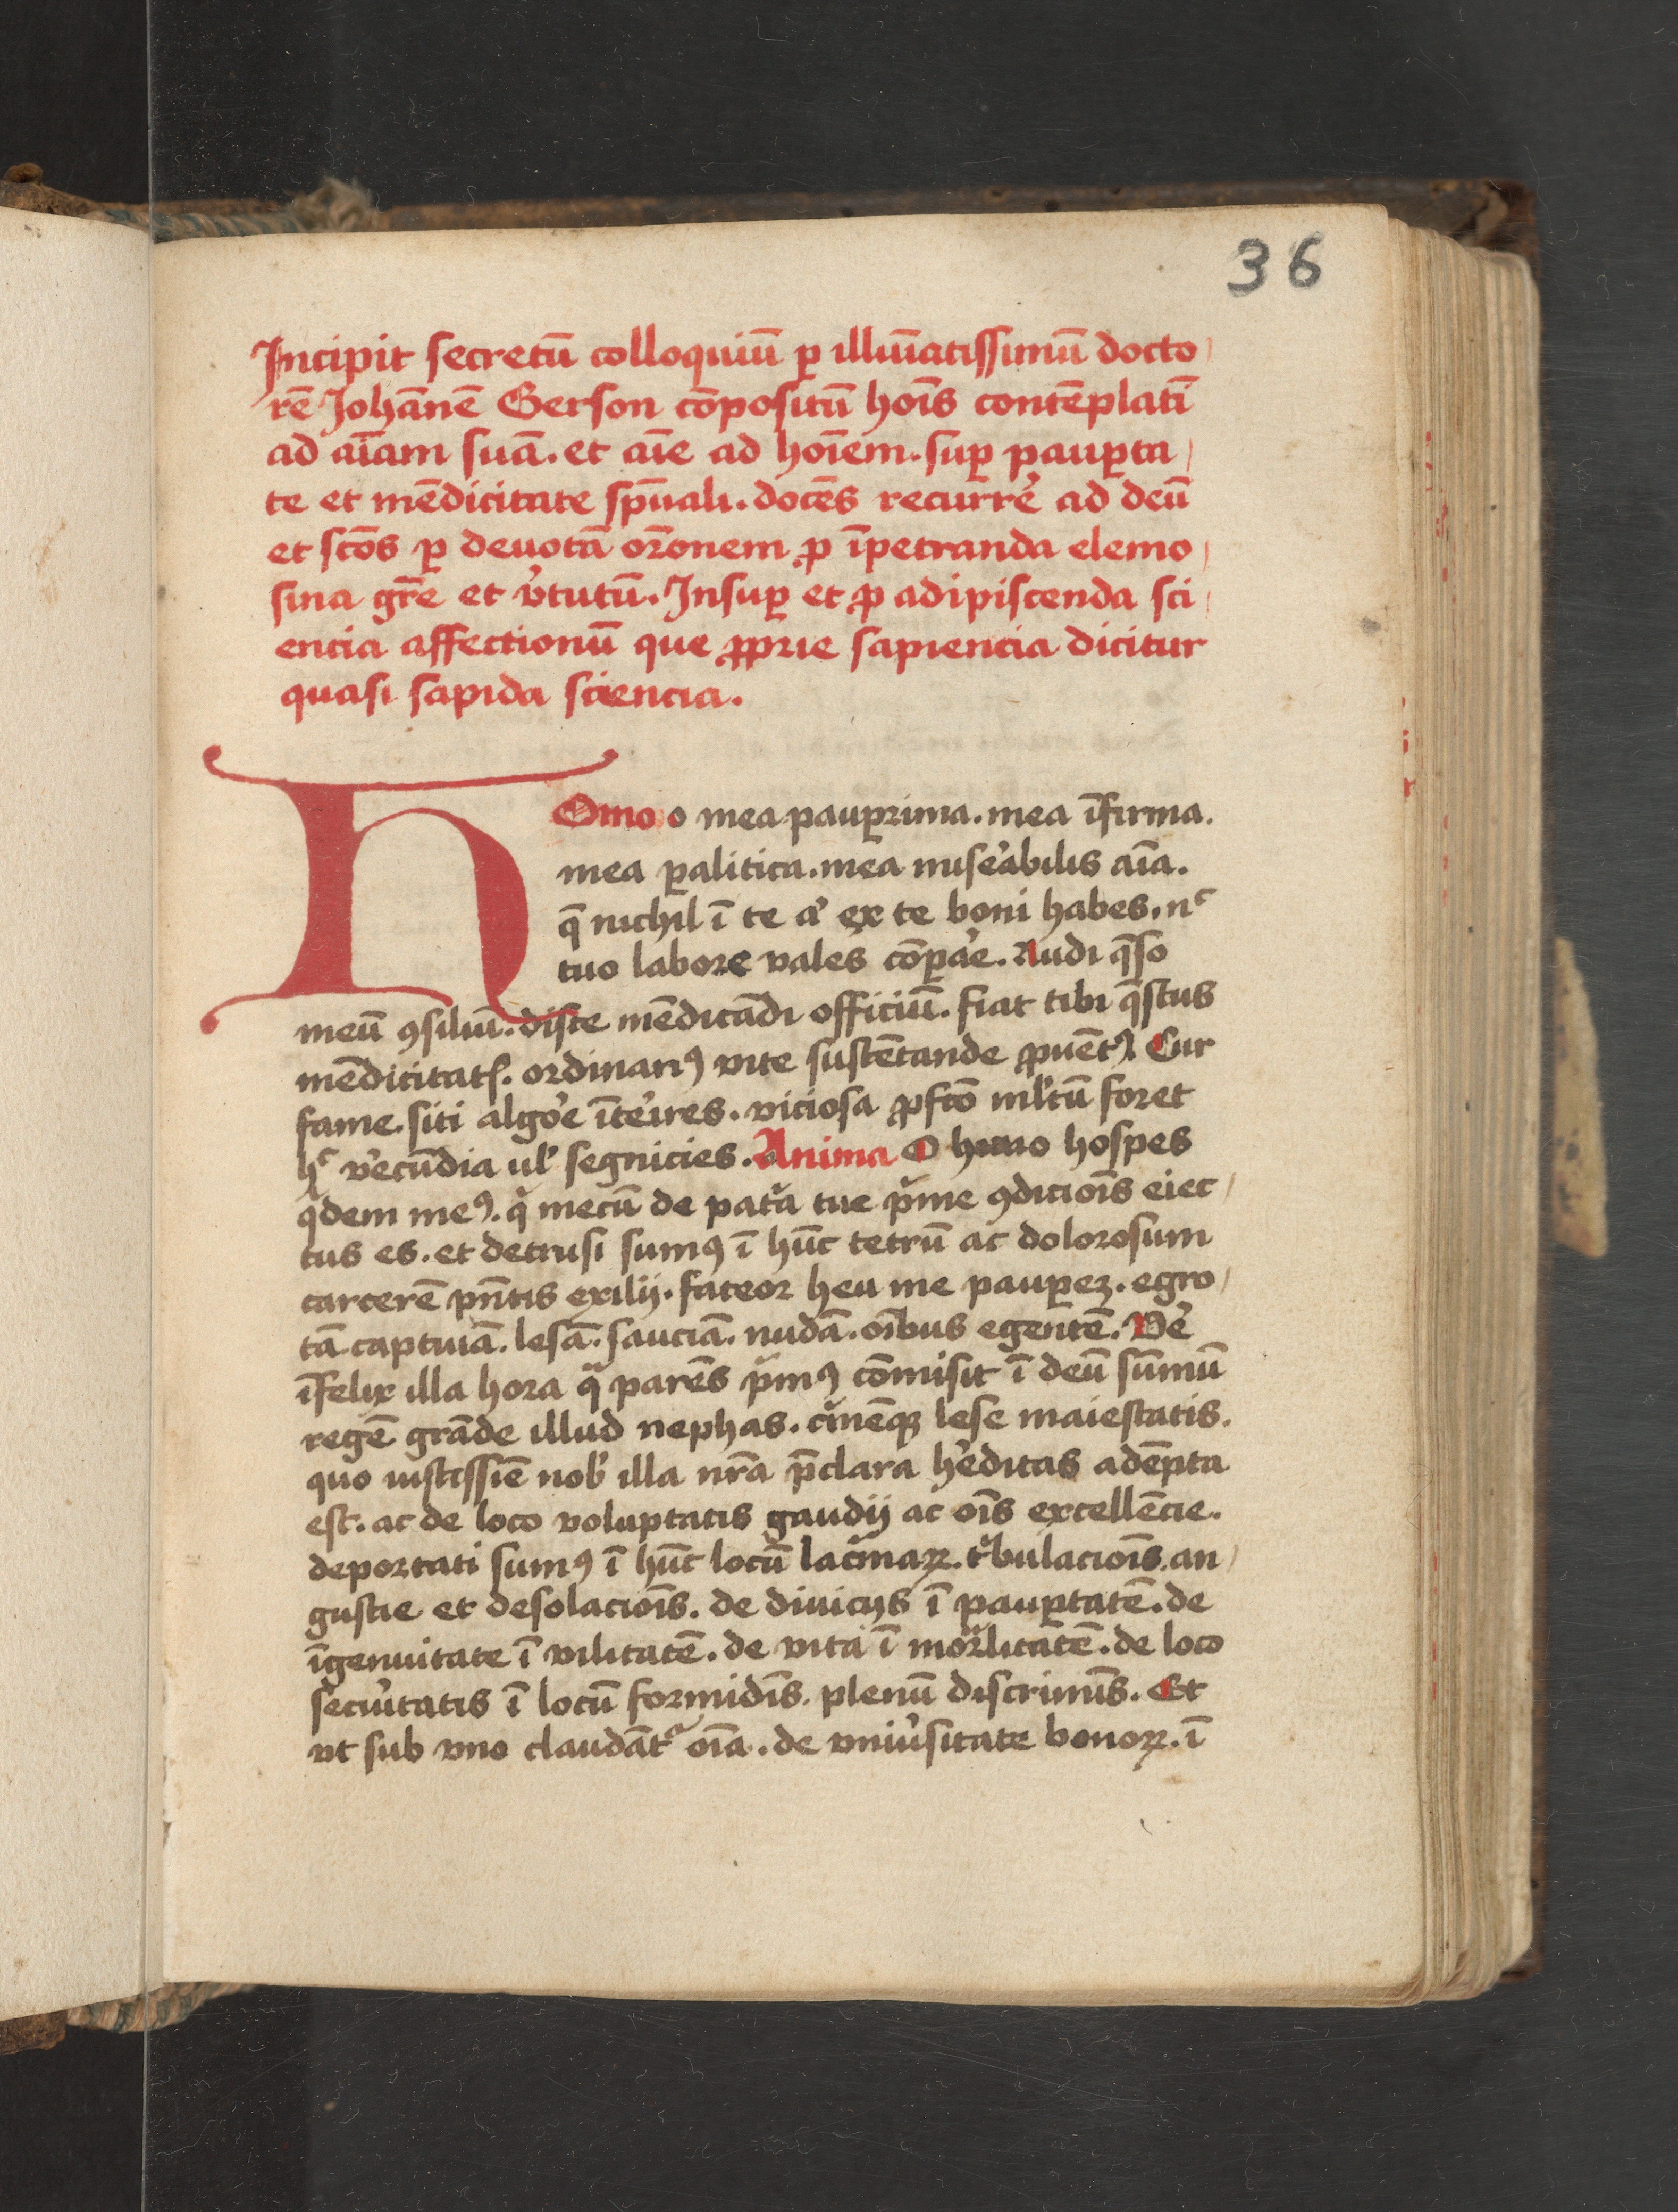 36
Incipit secretū colloquiū ꝑ illuīatissimū docto
rē Johānē Gerson cōpositū hoīs contēplatī
ad aīam suā. et aīe ad hoīem. suꝑ pauꝑta
te et mēdicitate spūali. docēs recurre᷒ ad deū
et scōs ꝑ deuotā orōnem ꝓ īpetranda elemo
sina gr̄e et v᷒tutū. Insuꝑ et ꝓ adipiscenda sci
encia affectionū que ꝓprie sapiencia dicitur
quasi sapida sciencia.
HOmo o mea pauꝑrima. mea īfirma.
mea ꝑalitica. mea mise᷒abilis aīa.
q̄ nichil ī te a᷒ ex te boni habes. nᶜ
tuo labore vales cōꝑa᷒e. Audi q̄so
meū ꝯsiliū. disce mēdicādi officiū. fiat tibi q̄stus
mēdicitatꝭ. ordinariꝰ vite sustētande ꝓuētꝰ. Cur
fame. siti algo᷒e īte᷒ires. viciosa ꝓfcō ml᷒tū foret
hᶜ v᷒ecūdia ul᷒ segnicies. Anima O homo hospes
qͥdem meꝰ. qͥ mecū de patͥa tue pͥme ꝯdicioīs eiec
tus es. et detrusi sumꝰ ī hūc tetrū ac dolorosum
carcerē pn̄tis exilij. fateor heu me pauꝑeꝫ. egro
tā captiuā. lesā. sauciā. nudā. oībus egentē. Ve᷒
īfelix illa hora qͣ parēs pͥmꝰ cōmisit ī deū sūmū
regē grāde illud nephas. cͥmēqꝫ lese maiestatis.
quo iustissīe nob᷒ illa nr̄a p̄clara h᷒editas adēpta
est. ac de loco voluptatis gaudij ac oīs excellēcie.
deportati sumꝰ ī hūc locū lacͥmaꝝ. tͥbulacioīs. an
gustie et desolacioīs. de diuicijs ī pauꝑtatē. de
īgenuitate ī vilitatē. de vita ī morͣlitatē. de loco
secu᷒itatis ī locū formidīs. plenū discrimīs. Et
vt sub vno claudātᷣ oīa. de vniu᷒sitate bonoꝝ. ī